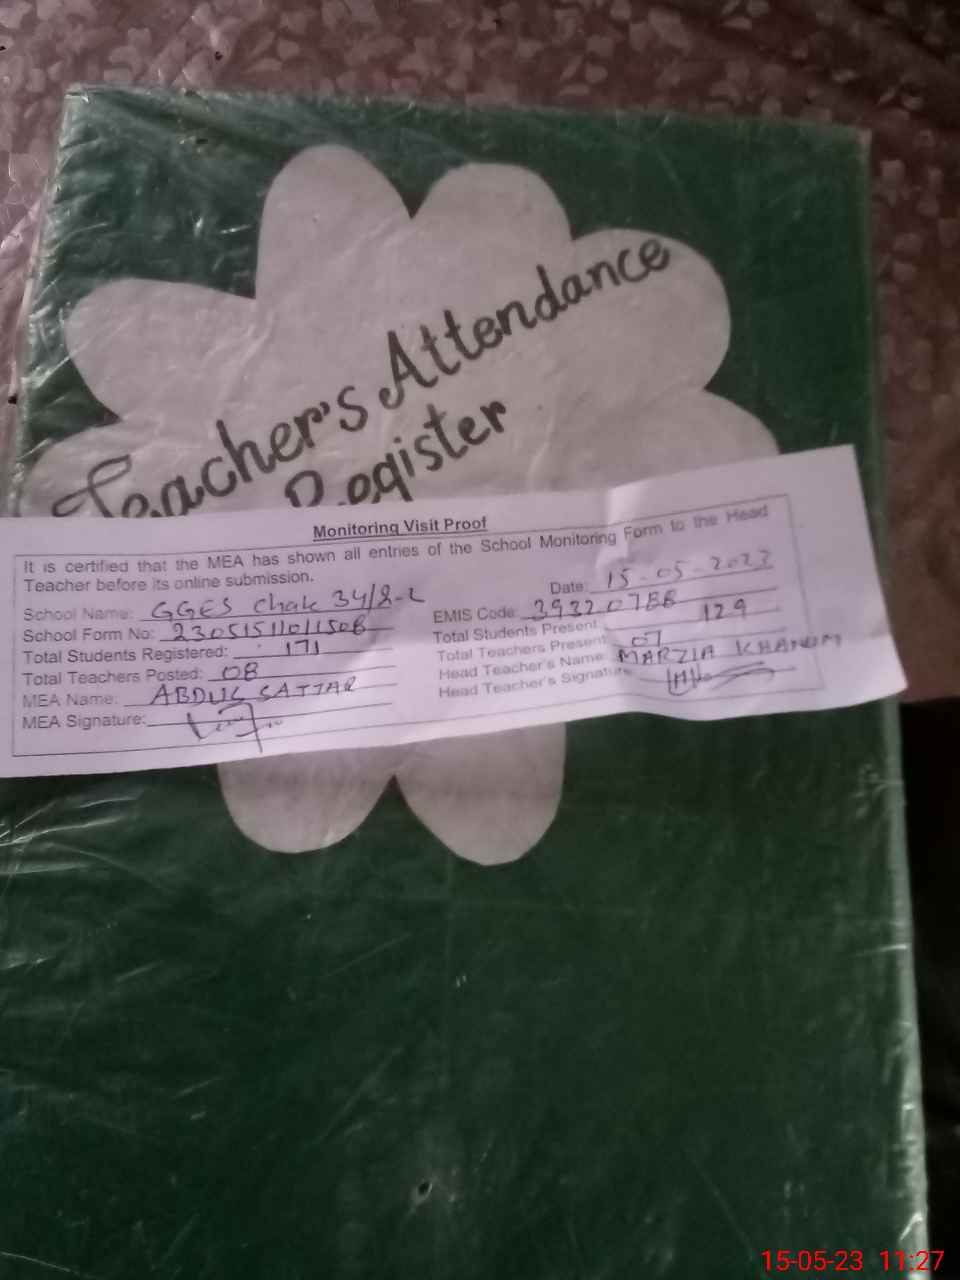 Teacher's Attendance
Register
Monitoring Visit Proof
It is certified that the MEA has shown all entries of the School Monitoring Form to the Head
Teacher before its online submission.
Date: 15-05-2023
School Name: GGES Chak 34/2-L
EMIS Code: 39320788
School Form No: 23051511011508
Total Students Present: 129
Total Students Registered: 171
Total Teachers Present: 07
Total Teachers Posted: 08
Head Teacher's Name: MARZIA KHANUM
MEA Name: ABDUL SATTAR
Head Teacher's Signature:
MEA Signature:
15-05-23 11:27